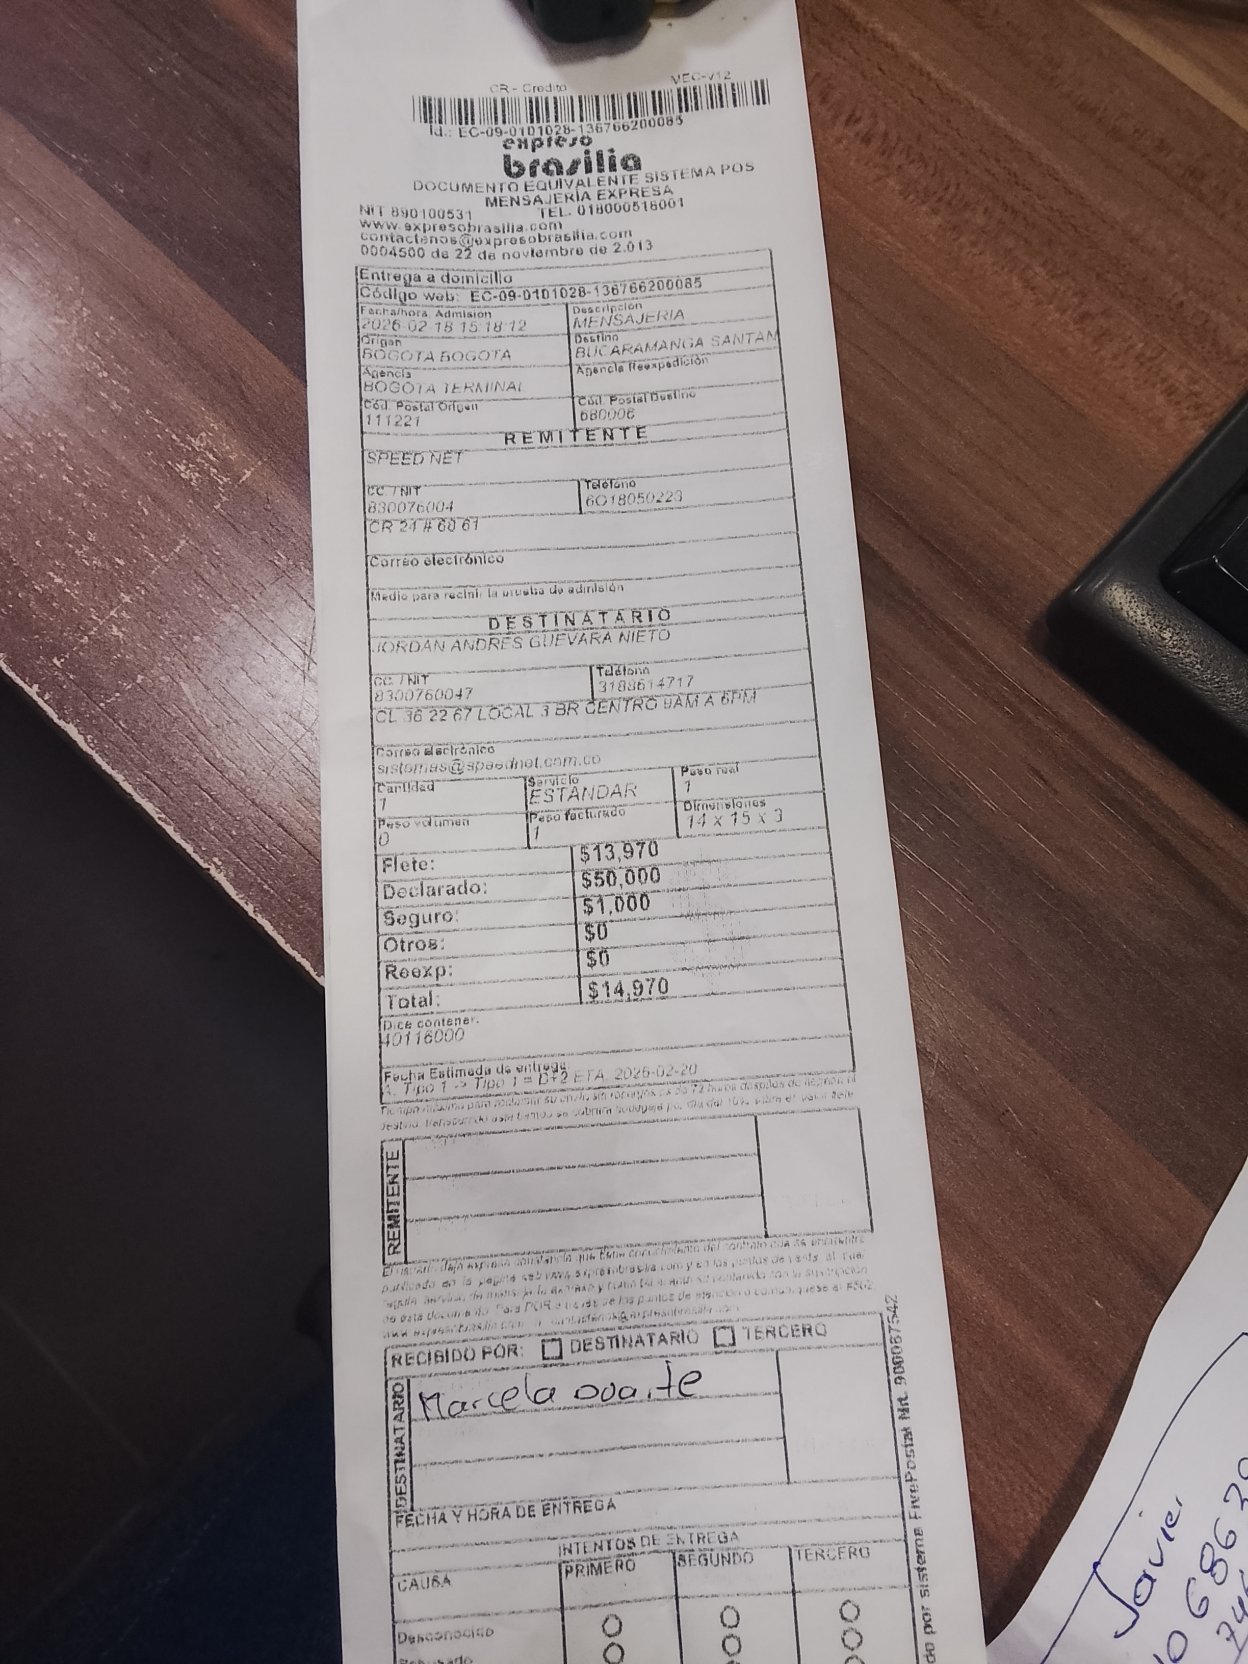 CR - Credito MEC-V12
Id.: EC-09-0101028-136766200085
expreso
brasilia
DOCUMENTO EQUIVALENTE SISTEMA POS
MENSAJERIA EXPRESA
NIT 890100531 TEL. 018000518001
www.expresobrasilia.com
contactenos@expresobrasilia.com
0004500 de 22 de noviembre de 2.013
Entrega a domicilio
Código web: EC-09-0101028-136766200085
Fecha/hora Admisión Descripción
2026-02-18 15:18:12 MENSAJERIA
Origen Destino
BOGOTA BOGOTA BUCARAMANGA SANTAN
Agencia Agencia Reexpedición
BOGOTA TERMINAL
Cód. Postal Origen Cód. Postal Destino
111221 680006
REMITENTE
SPEED NET
CC. / NIT Teléfono
830076004 6018050223
CR 21 # 60 61
Correo electrónico
Medio para recibir la prueba de admisión
DESTINATARIO
JORDAN ANDRES GUEVARA NIETO
CC. / NIT Teléfono
8300760047 3188614717
CL 36 22 67 LOCAL 3 BR CENTRO 9AM A 6PM
Correo electrónico
sistemas@speednet.com.co
Cantidad Servicio Peso real
1 ESTANDAR 1
Peso volumen Peso facturado Dimensiones
0 1 14 x 15 x 3
Flete: $13,970
Declarado: $50,000
Seguro: $1,000
Otros: $0
Reexp: $0
Total: $14,970
Dice contener:
40116000
Fecha Estimada de entrega:
Tipo 1 -> Tipo 1 = D+2 ETA: 2026-02-20
REMITENTE
RECIBIDO POR: DESTINATARIO TERCERO
DESTINATARIO
Marcela Duarte
FECHA Y HORA DE ENTREGA
INTENTOS DE ENTREGA
CAUSA PRIMERO SEGUNDO TERCERO
Desconocido
Rehusado
do por sistema FivePostal Nit. 900087542
Javier